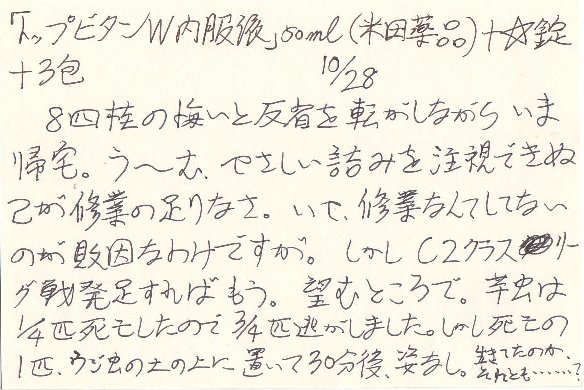 「トップビタンW内服液」50ml(米田薬品)+☆錠
+3包 10/28
8四桂の悔いと反省を転がしながら いま
帰宅。う〜む、やさしい詰みを注視できぬ
己が修業の足りなさ。いで、修業なんてしてない
のが敗因なわけですが。しかしC2クラス リー
グ戦発足すればもう。望むところで。芋虫は
1/4匹死亡したので3/4匹逃がしました。しかし死その
1匹、ウジ虫の土の上に置いて30分後、姿なし。生きてたのか、
それとも……?